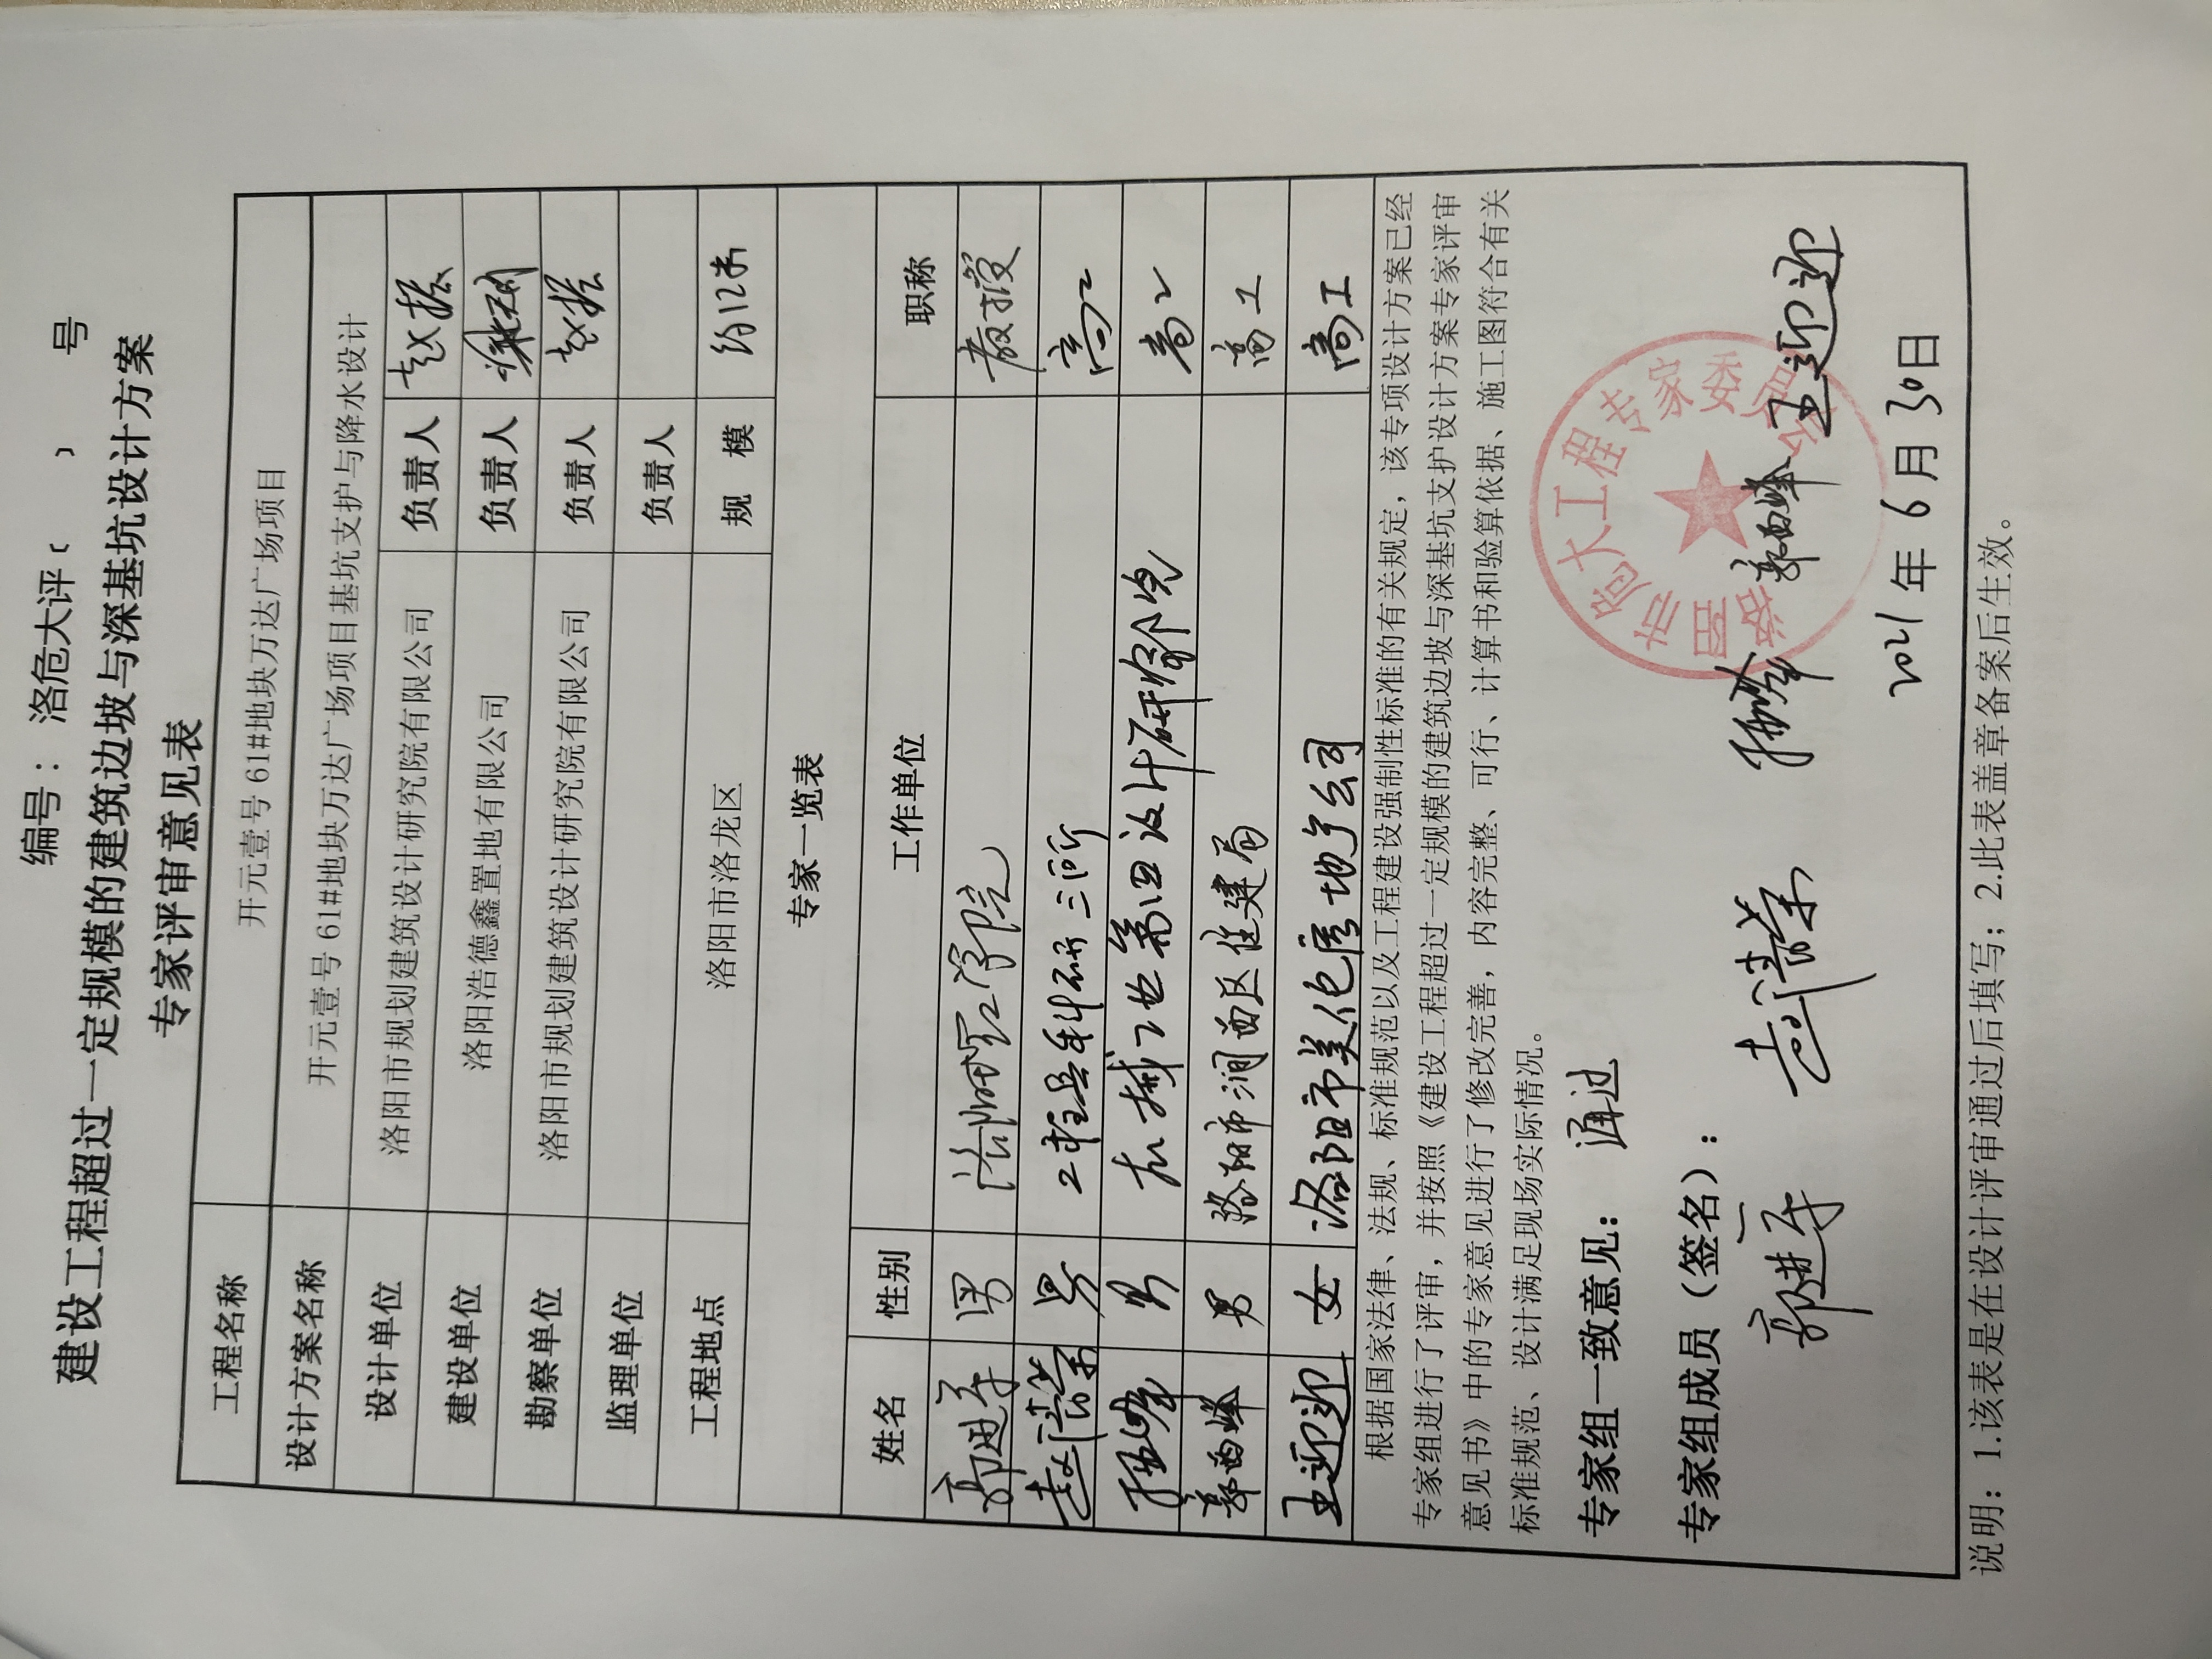 编号：洛危大评〔　　〕　　号
建设工程超过一定规模的建筑边坡与深基坑设计方案
专家评审意见表
工程名称 开元壹号61#地块万达广场项目
设计方案名称 开元壹号61#地块万达广场项目基坑支护与降水设计
设计单位 洛阳市规划建筑设计研究院有限公司 负责人 赵振
建设单位 洛阳浩德鑫置地有限公司 负责人
勘察单位 洛阳市规划建筑设计研究院有限公司 负责人 赵振
监理单位 负责人
工程地点 洛阳市洛龙区 规 模 约12米
专家一览表
姓名 性别 工作单位 职称
郭进军 男 洛阳理工学院 教授
男 高工
男 机械工业第四设计研究院 高工
郭西峰 男 洛阳市涧西区住建局 高工
王迎迎 女 洛阳市 公司 高工
根据国家法律、法规、标准规范以及工程建设强制性标准的有关规定，该专项设计方案已经
专家组进行了评审，并按照《建设工程超过一定规模的建筑边坡与深基坑支护设计方案专家评审
意见书》中的专家意见进行了修改完善，内容完整、可行、计算书和验算依据、施工图符合有关
标准规范、设计满足现场实际情况。
专家组一致意见：通过
洛阳市危大工程专家委员会
专家组成员（签名）：
郭进军 郭西峰 王迎迎
2021年6月30日
说明：1.该表是在设计评审通过后填写；2.此表盖章备案后生效。